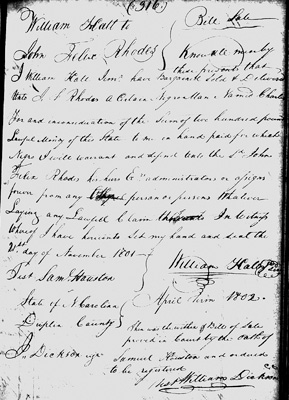 (316)
William Hall to Bill Sale
John Felix Rhodes
Know all men by
these presents that
I William Hall Senr have Bargained Sold & Delivered
unto J. F. Rhodes a Certain Negro Man Named Charles
For and in consideration of the Sum of two hundred pounds
Lawful Money of this State to me in hand paid for which
Negro I will warrant and defend unto the Sd John
Felix Rhodes his heirs & administrators or assigns
from any person or persons Whatever
Laying any Lawfull Claim In Testimony
Whereof I have hereunto Set my hand and seal the
21st day of November 1801
William Hall
Test Saml Houston
State of N Carolina April Term 1802
Duplin County
The within Bill of Sale
proved in Court by the oath of
J. Dickson
Samuel Houston and ordered
to be registered
Test William Dickson